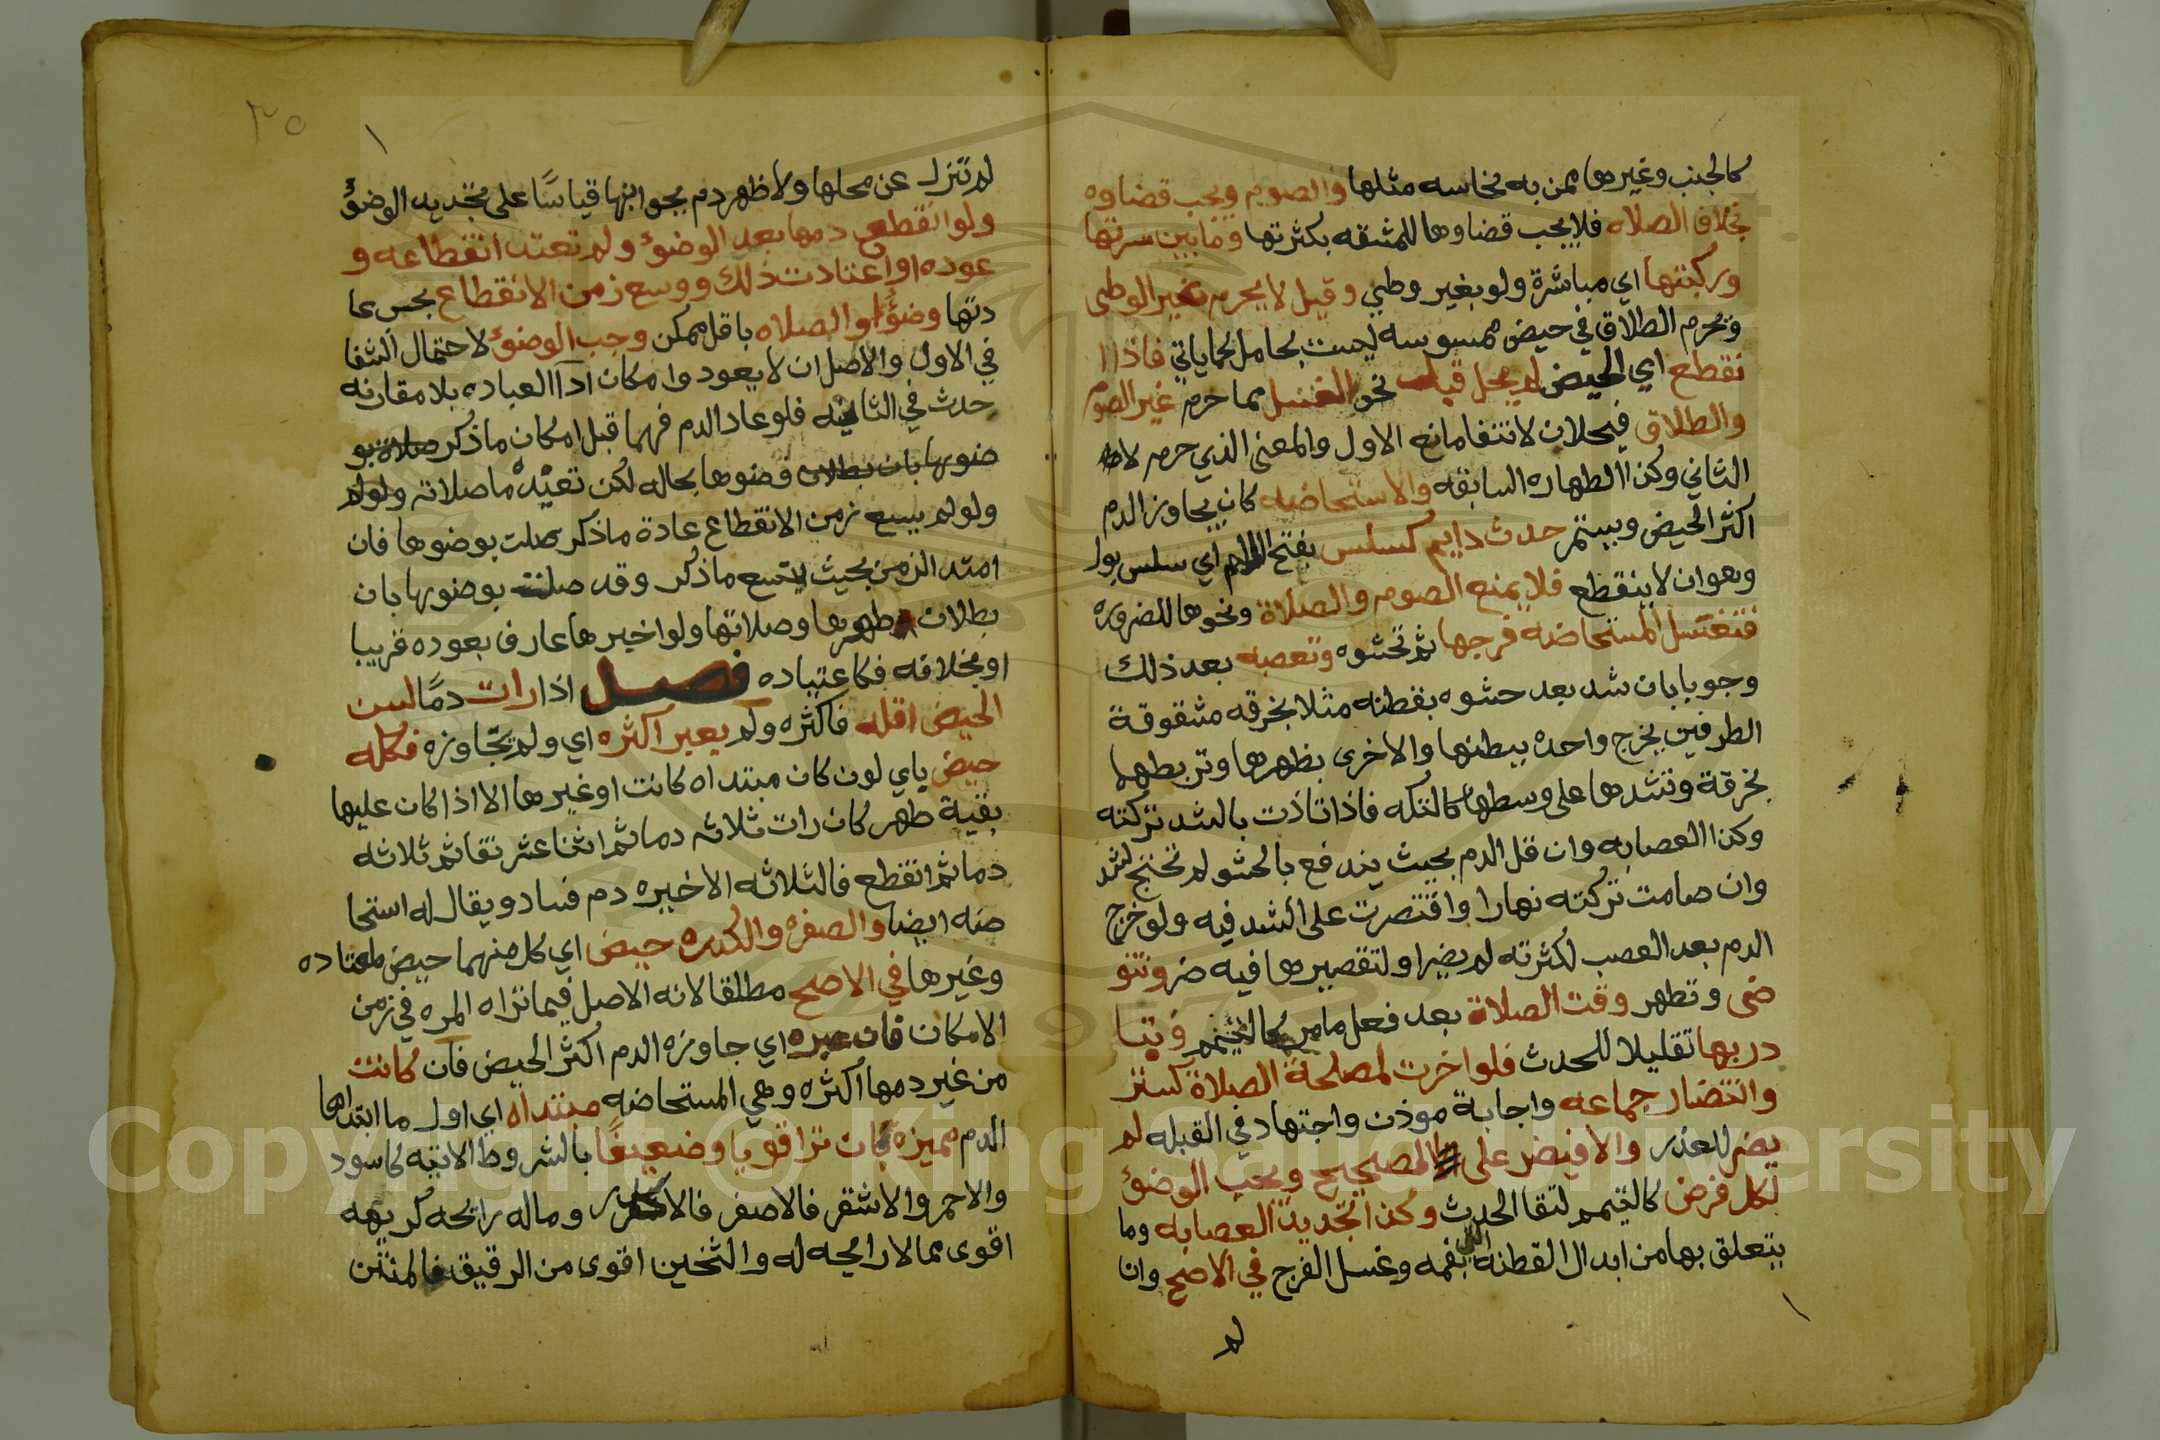 كالجنب وغيرها ممن به نجاسه مثلها والصوم ويجب قضاوه
بخلاف الصلاه فلا يجب قضاوها للمشقه بكثرتها وما بين سرتها
وركبتها اي مباشرة ولو بغير وطيٍ وقيل لا يحرم غير الوطي
ويحرم الطلاق في حيض ممسوسه ليست بحامل كما ياتي فاذا ا
نقطع اي الحيض لم يحل قبل نحو الغسل مما حرم غير الصوم
والطلاق فيحلان لانتفا مانع الاول والمعنى الذي حرم لاجله
الثاني وكذا الطهاره السابقه والاستحاضه كان يجاوز الدم
اكثر الحيض ويستمر حدث دايم كسلس بفتح اللام اي سلس بول
وهو ان لا ينقطع فلا يمنع الصوم والصلاة ونحوها للضروره
فتغتسل المستحاضه فرجها ثم تحشوه وتعصبه بعد ذلك
وجوبا بان شد بعد حشوه بقطنه مثلا بخرقه مشقوقة
الطرفين يخرج واحده ببطنها والاخرى بظهرها وتربطهما
بخرقة وتشدها على وسطها كالتكه فاذا تاذت بالشد تركته
وكذا العصابه وان قل الدم بحيث يندفع بالحشو لم تحتج لشد
وان صامت تركته نهارا واقتصرت على الشد فيه ولو خرج
الدم بعد العصب لكثرته لم يضر او لتقصيرها فيه ضر وتتو
ضى وتطهر وقت الصلاة بعد فعل ما مر كالتيمم وتبا
در بها تقليلا للحدث فلو اخرت لمصلحة الصلاة كستر
وانتضار جماعه واجابة موذن واجتهاد في القبله لم
يضر للعذر والا فيضر على الصحيح ويجب الوضؤ
لكل فرض كالتيمم لبقا الحدث وكذا تجديد العصابه وما
يتعلق بها من ابدال القطنه التي بفمه وغسل الفرج في الاصح وان
لم
٢٥
لم تنزل عن محلها ولا ظهر دم بجوانبها قياسًا على تجديد الوضؤ
ولو انقطع دمها بعد الوضؤ ولم تعتد انقطاعه و
عوده او اعتادت ذلك ووسع زمن الانقطاع بحسب عا
دتها وضؤا والصلاه باقل ممكن وجب الوضؤ لاحتمال الشفا
في الاول والاصل ان لا يعود وامكان ادآ العباده بلا مقارنه
حدث في الثانيه فلو عاد الدم فيهما قبل امكان ما ذكر صلاة بو
ضوها بان بطلان فضوها بحاله لكن تعيد ما صلاته ولو لم
ولو لم يسع زمن الانقطاع عادة ما ذكر صلت بوضوها فان
امتد الزمن بحيث يتسع ما ذكر وقد صلت بوضوها بان
بطلان طهرها وصلاتها ولو اخبرها عارف بعوده قريبا
او بخلافه فكاعتباده فصل اذا رات دمًا لسن
الحيض اقله فاكثره ولم يعبر اكثره اي ولم يتجاوزه فكله
حيض باي لون كان مبتداه كانت او غيرها الا اذا كان عليها
بقية طهر كان رات ثلاثه دما ثم اثنا عشر نقا ثم ثلاثه
دما ثم انقطع فالثلاثه الاخيره دم فساد ويقال له استحا
ضه ايضا والصفره والكدره حيض اي كل منهما حيض لمعتاده
وغيرها في الاصح مطلقا لانه الاصل فيما تراه المره في زمن
الامكان فان عبره اي جاوزه الدم اكثر الحيض فان كانت
من غير دمها اكثره وهي المستحاضه مبتداه اي اول ما ابتداها
الدم مميزة بان ترا قويا وضعيفًا بالشروط الاتيه كاسود
والاحمر والاشقر فالاصفر فالاكدر وماله رايحه كريهه
اقوى مما لا رايحه له والثخين اقوى من الرقيق فالمنتن
Copyright © King Saud University